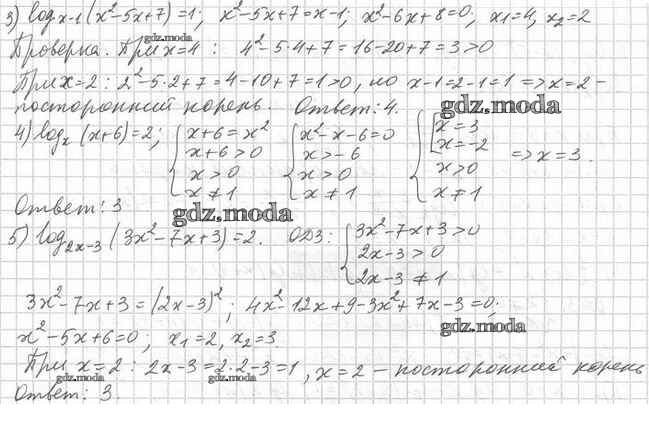 3) log_{x-1}(x²-5x+7)=1; x²-5x+7=x-1; x²-6x+8=0; x₁=4, x₂=2
gdz.moda
Проверка. При x=4 : 4²-5·4+7=16-20+7=3>0
При x=2: 2²-5·2+7=4-10+7=1>0, но x-1=2-1=1 => x=2 –
посторонний корень. Ответ: 4.
gdz.moda
4) log_x (x+6)=2; { x+6=x² { x²-x-6=0 { [ x=3
x+6>0 x>-6 x=-2 => x=3.
x>0 x>0 x>0
x≠1 x≠1 x≠1
Ответ: 3
gdz.moda
5) log_{2x-3} (3x²-7x+3)=2. ОДЗ: { 3x²-7x+3>0
2x-3>0
2x-3≠1
3x²-7x+3=(2x-3)²; 4x²-12x+9-3x²+7x-3=0;
gdz.moda
x²-5x+6=0; x₁=2, x₂=3
При x=2: 2x-3=2·2-3=1, x=2 – посторонний корень
gdz.moda gdz.moda
Ответ: 3.